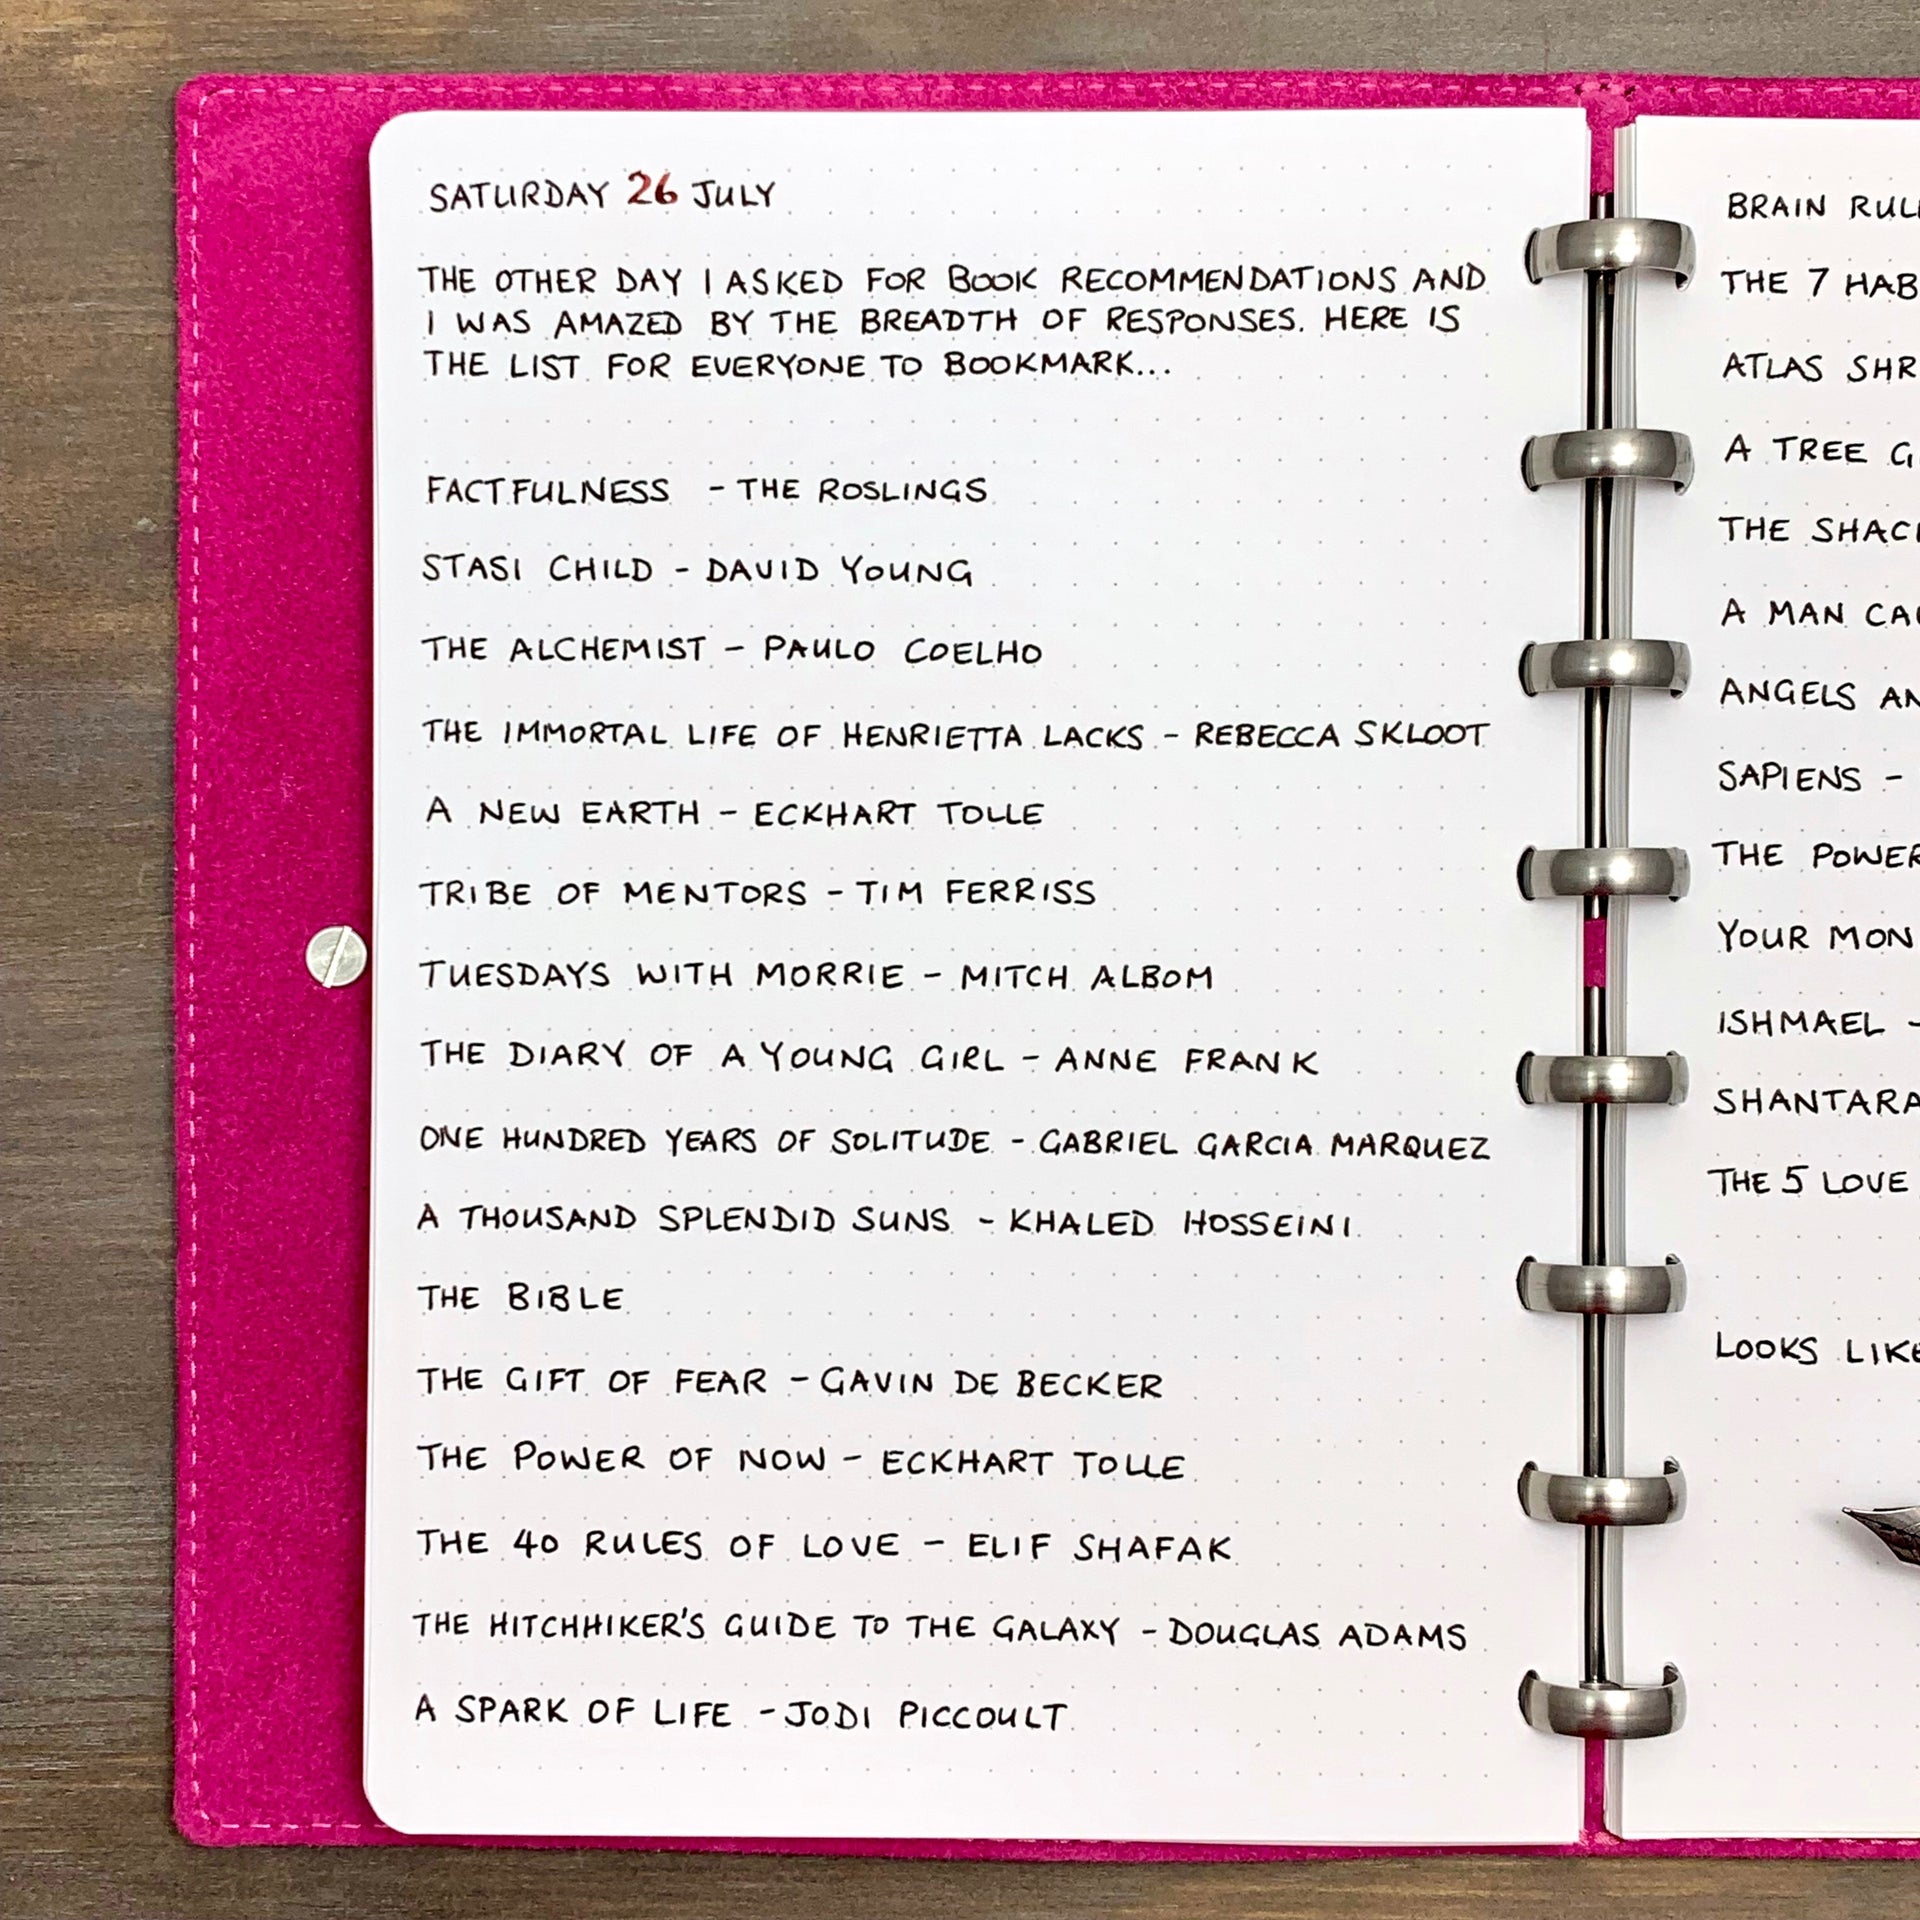 SATURDAY 26 JULY
THE OTHER DAY I ASKED FOR BOOK RECOMMENDATIONS AND
I WAS AMAZED BY THE BREADTH OF RESPONSES. HERE IS
THE LIST FOR EVERYONE TO BOOKMARK...
FACTFULNESS - THE ROSLINGS
STASI CHILD - DAVID YOUNG
THE ALCHEMIST - PAULO COELHO
THE IMMORTAL LIFE OF HENRIETTA LACKS - REBECCA SKLOOT
A NEW EARTH - ECKHART TOLLE
TRIBE OF MENTORS - TIM FERRISS
TUESDAYS WITH MORRIE - MITCH ALBOM
THE DIARY OF A YOUNG GIRL - ANNE FRANK
ONE HUNDRED YEARS OF SOLITUDE - GABRIEL GARCIA MARQUEZ
A THOUSAND SPLENDID SUNS - KHALED HOSSEINI
THE BIBLE
THE GIFT OF FEAR - GAVIN DE BECKER
THE POWER OF NOW - ECKHART TOLLE
THE 40 RULES OF LOVE - ELIF SHAFAK
THE HITCHHIKER'S GUIDE TO THE GALAXY - DOUGLAS ADAMS
A SPARK OF LIFE - JODI PICCOULT
BRAIN
THE 7
ATLAS
A TREE
THE
A MAN
ANGELS
SAPIENS -
THE POWER
YOUR
ISHMAEL -
THE 5 LOVE
LOOKS